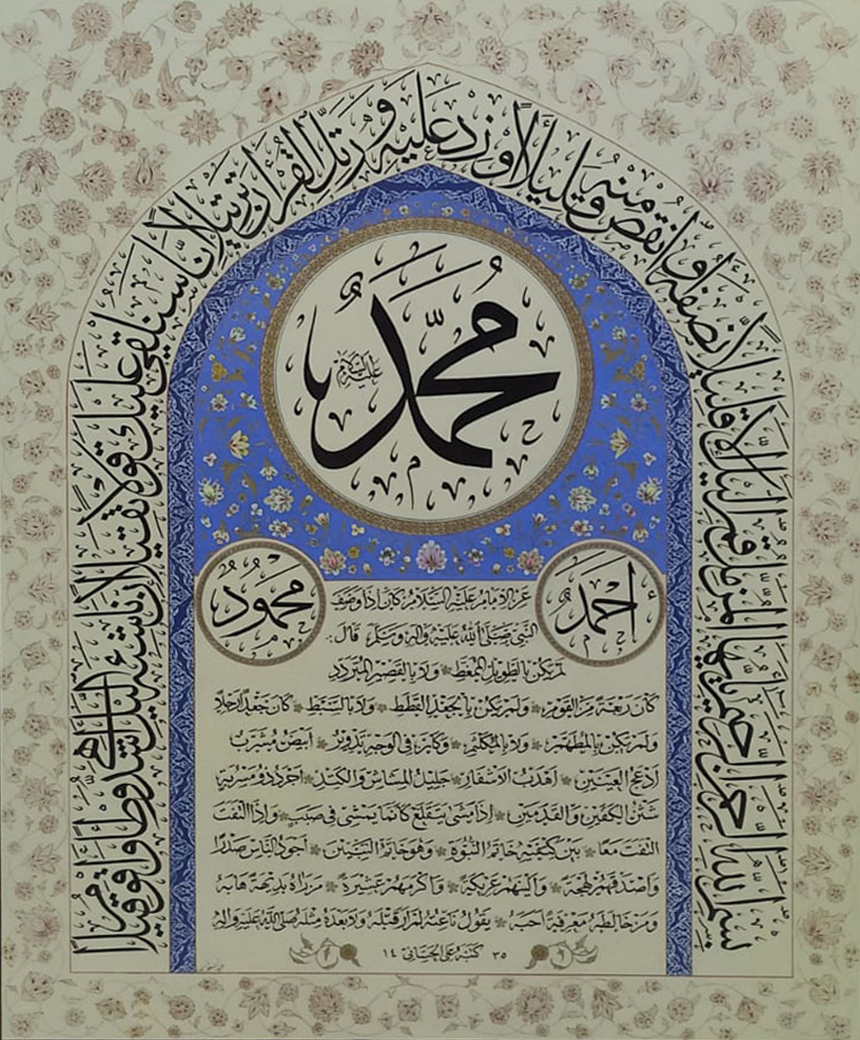 بِسْمِ اللهِ الرَّحْمٰنِ الرَّحِيمِ يَا أَيُّهَا الْمُزَّمِّلُ قُمِ اللَّيْلَ إِلَّا قَلِيلًا نِصْفَهُ أَوِ انْقُصْ مِنْهُ قَلِيلًا أَوْ زِدْ عَلَيْهِ وَرَتِّلِ الْقُرْآنَ تَرْتِيلًا إِنَّا سَنُلْقِي عَلَيْكَ قَوْلًا ثَقِيلًا إِنَّ نَاشِئَةَ اللَّيْلِ هِيَ أَشَدُّ وَطْأً وَأَقْوَمُ قِيلًا
مُحَمَّدٌ
عليه السلام
أحمد
محمود
عن الامام عليه السلام كان اذا وصف
النبي صلى الله عليه وآله وسلم قال:
لم يكن بالطويل الممغط * ولا بالقصير المتردد
كان ربعة من القوم * ولم يكن بالجعد القطط * ولا بالسبط * كان جعدا رجلا
ولم يكن بالمطهم * ولا بالمكلثم * وكان في الوجه تدوير * ابيض مشرب
ادعج العينين * اهدب الاشفار * جليل المشاش والكتد * اجرد ذو مسربة
شثن الكفين والقدمين * اذا مشى يتقلع كأنما يمشي في صبب * واذا التفت
التفت معا * بين كتفيه خاتم النبوة * وهو خاتم النبيين * اجود الناس صدرا
واصدقهم لهجة * والينهم عريكة * واكرمهم عشيرة * من رآه بديهة هابه
ومن خالطه معرفة احبه * يقول ناعته لم ار قبله ولا بعده مثله صلى الله عليه وآله
٣٥ كتبه علي ١٤